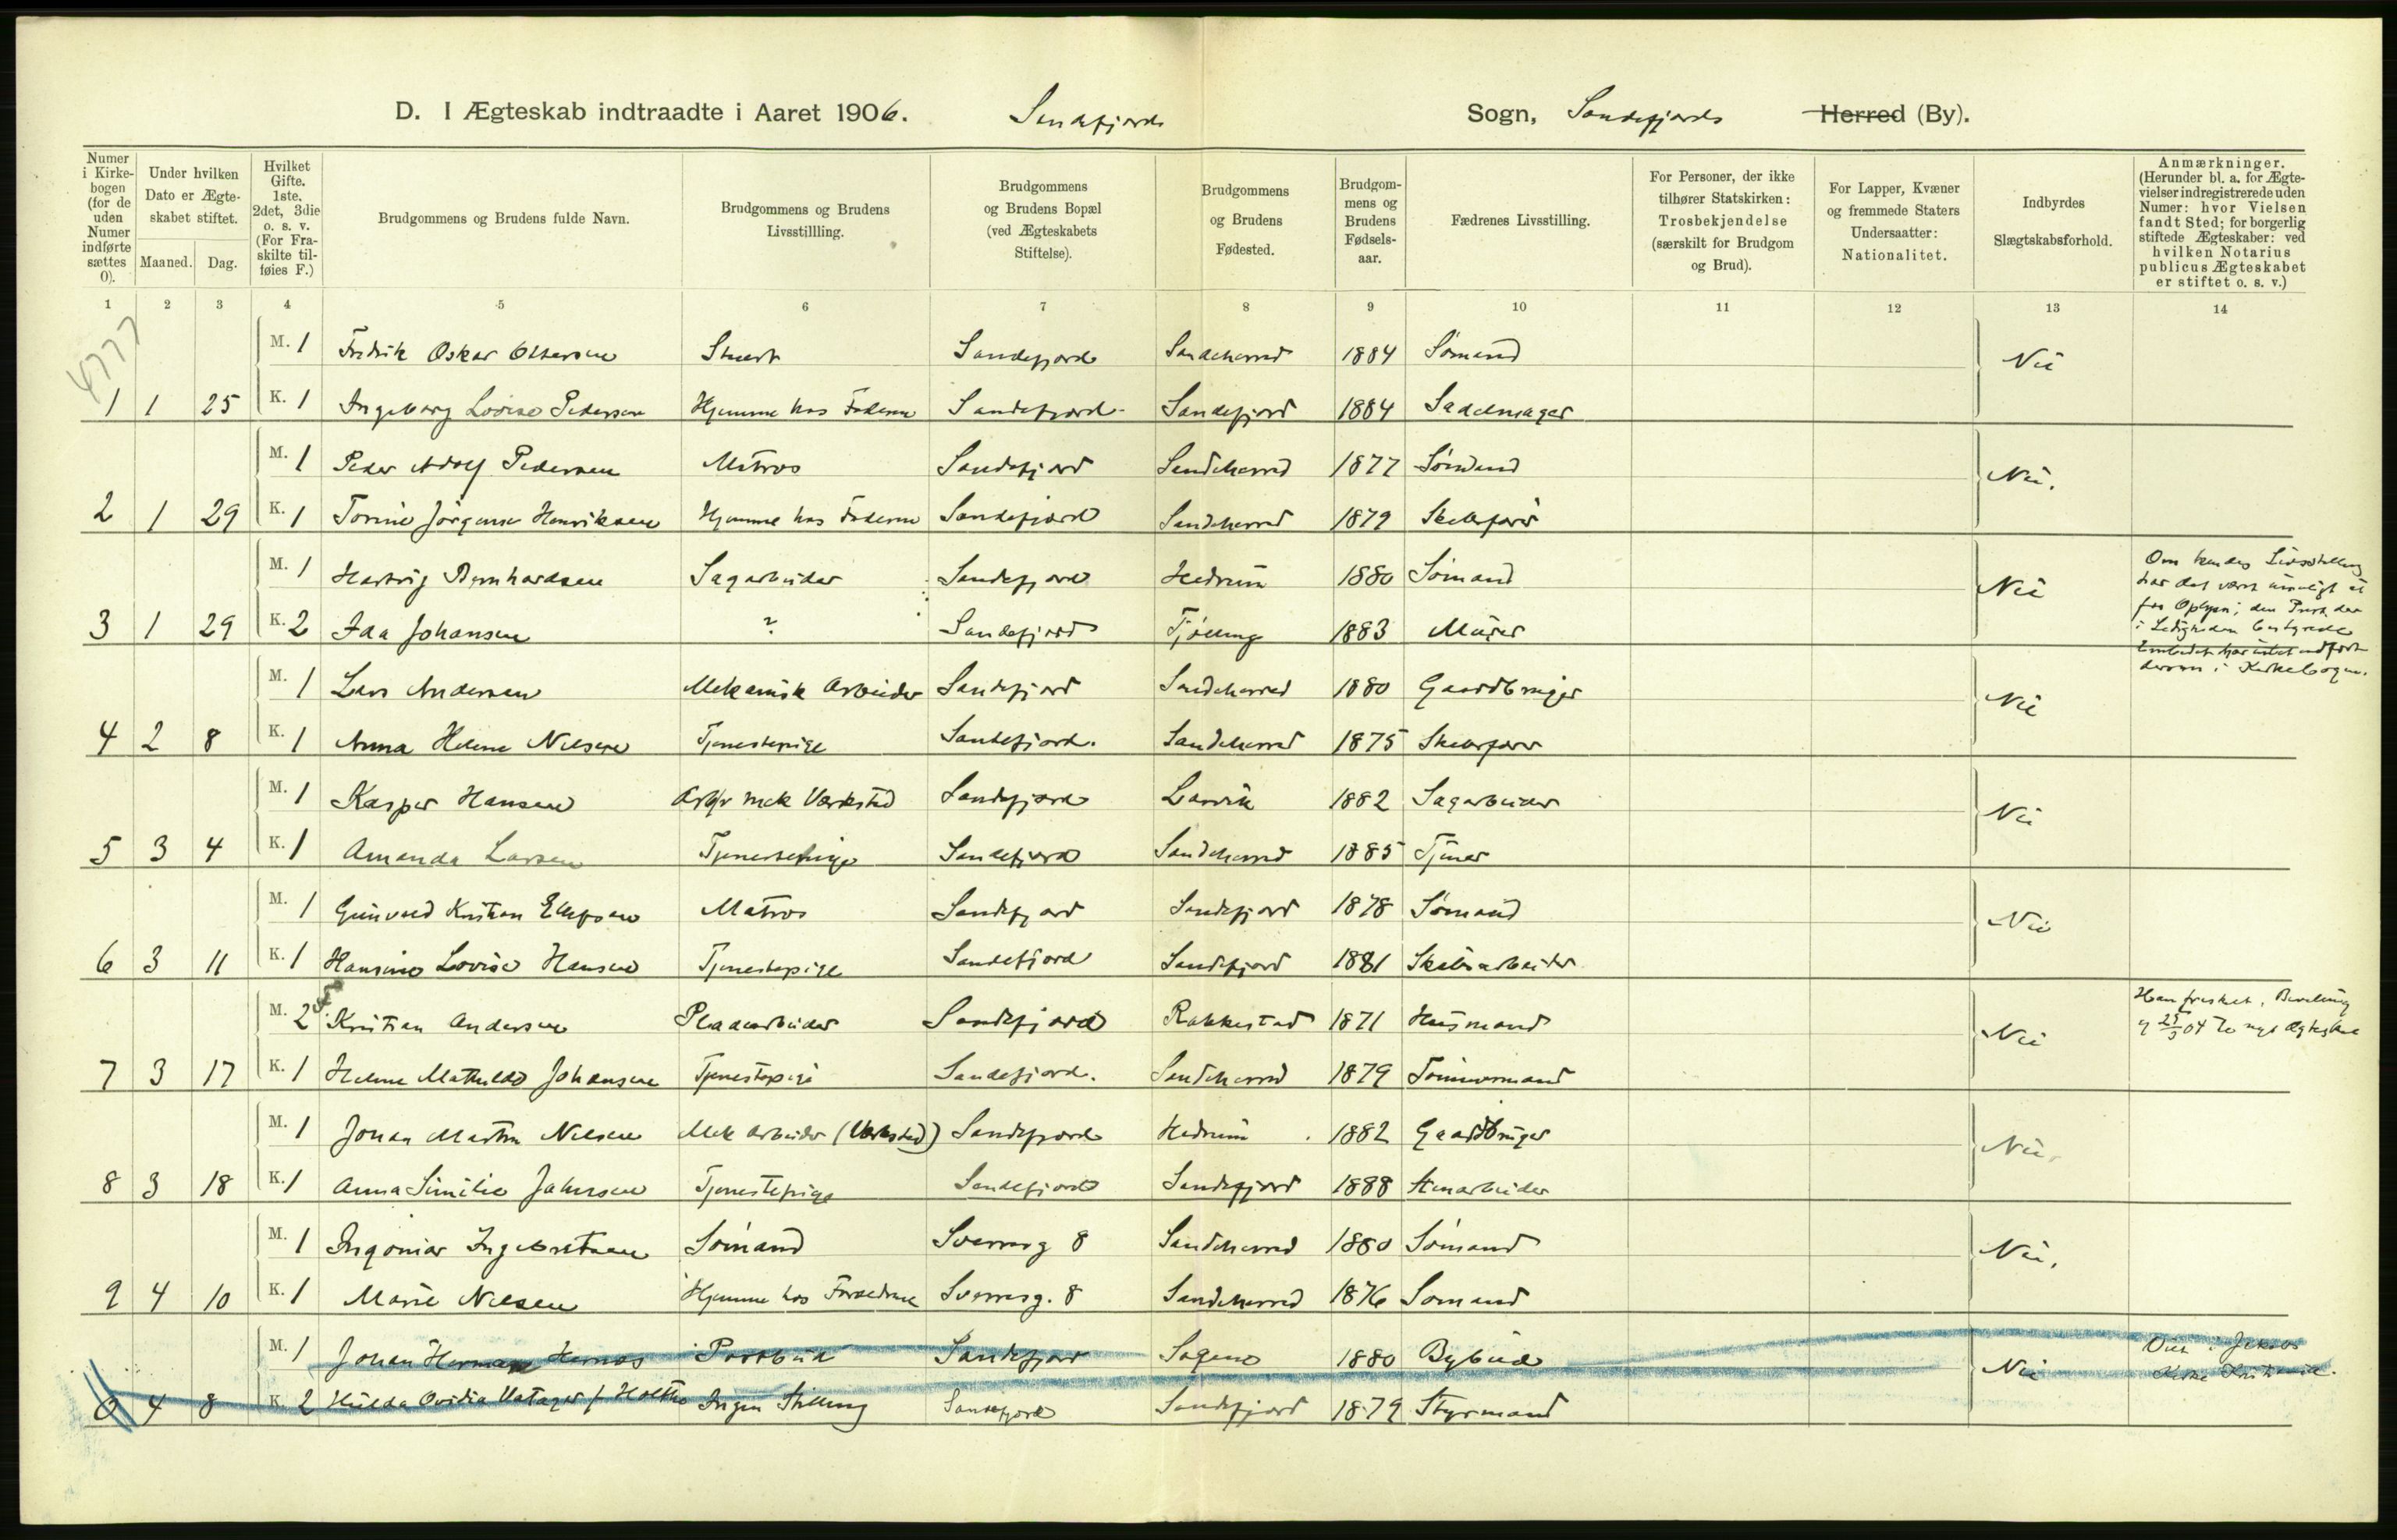 D. I Ægteskab indtraadte i Aaret 1906. Sandefjords Sogn, Sandefjords Herred (By).
Numer i Kirkebogen (for de uden Numer indførte sættes 0).
Under hvilken Dato er Ægteskabet stiftet.
Maaned. Dag.
Hvilket Gifte. 1ste. 2det, 3die o. s. v. (For Fraskilte tilføies F.)
Brudgommens og Brudens fulde Navn.
Brudgommens og Brudens Livsstillling.
Brudgommens og Brudens Bopæl (ved Ægteskabets Stiftelse).
Brudgommens og Brudens Fødested.
Brudgommens og Brudens Fødselsaar.
Fædrenes Livsstilling.
For Personer, der ikke tilhører Statskirken: Trosbekjendelse (særskilt for Brudgom og Brud).
For Lapper, Kvæner og fremmede Staters Undersaatter: Nationalitet.
Indbyrdes Slægtskabsforhold.
Anmærkninger. (Herunder bl. a. for Ægtevielser indregistrerede uden Numer: hvor Vielsen fandt Sted; for borgerlig stiftede Ægteskaber: ved hvilken Notarius publicus Ægteskabet er stiftet o. s. v.)
1 2 3 4 5 6 7 8 9 10 11 12 13 14
4777
M. 1 Fredrik Oskar Sandefjord Sandeherred 1884 Sømand Nei
1 1 25 K. 1 Ingeborg Lovise Pedersen Hjemme hos Sandefjord Sandefjord 1884 Sadelmager
M. 1 Peder Adolf Pedersen Matros Sandefjord Sandeherred 1877 Sømand Nei.
2 1 29 K. 1 Torine Jørgense Henriksen Hjemme hos Sandefjord Sandeherred 1879
M. 1 Hartvig Bernhardsen Sagarbeider Sandefjord Hedrum 1880 Sømand Nei
3 1 29 K. 2 Ida Johansen ? Sandefjord Tjølling 1883 Murer
Om hendes Livsstilling
har det været umuligt at
faa Oplysn; den Prest der
i Ledigheden bestyrede
Embedet har intet indført
derom i Kirkebogen.
M. 1 Lars Andersen Mekanisk Arbeider Sandefjord Sandeherred 1880 Gaardbruger Nei
4 2 8 K. 1 Anna Helene Nilsen Tjenestepige Sandefjord. Sandeherred 1875
M. 1 Kasper Hansen Arb. Mek Værksted Sandefjord Larvik 1882 Sagarbeider Nei
5 3 4 K. 1 Amanda Larsen Tjenestepige Sandefjord Sandeherred 1885 Tjener
M. 1 Kristian Matros Sandefjord Sandefjord 1878 Sømand Nei
6 3 11 K. 1 Hansine Lovise Hansen Tjenestepige Sandefjord Sandefjord 1881
M. 2 Kristian Andersen Sandefjord Rakkestad 1871 Husmand Nei
7 3 17 K. 1 Helene Mathilde Johansen Tjenestepige Sandefjord. Sandeherred 1879 Tømmermand
Han fraskilt, Bevilling
25/3 04 nyt Ægteskab
M. 1 Johan Martin Nilsen Mek Arbeider (Værksted) Sandefjord Hedrum 1882 Gaardbruger Nei
8 3 18 K. 1 Anna Tjenestepige Sandefjord Sandefjord 1888 Stenarbeider
M. 1 Ingomar Ingebretsen Sømand Sverresg 8 Sandeherred 1880 Sømand Nei.
9 4 10 K. 1 Marie Nilsen Hjemme hos Forældrene Sverresg. 8 Sandeherred 1876 Sømand
M. 1 Johan Herman Postbud Sandefjord 1880 Bybud Nei
0 4 8 K. 2 Hulda Ovidia Ingen Stilling Sandefjord Sandefjord 1879 Styrmand
Viet i Jakobs
Kirke Kristiania.